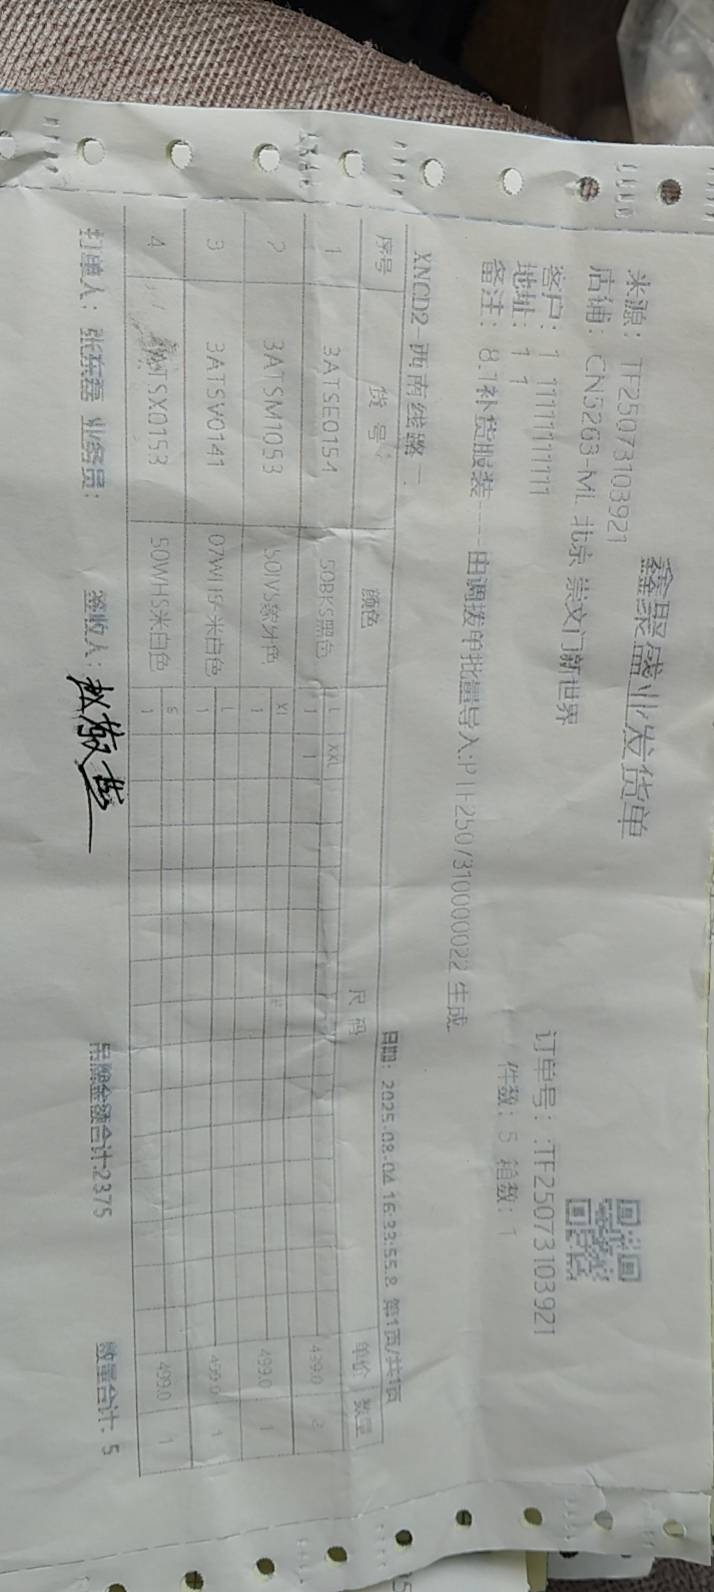 鑫聚盛业发货单
来源：TF25073103921
店铺：CN5263-ML 北京 崇文门新世界
订单号：:TF25073103921
客户：1 1111111111
件数：5 箱数：1
地址：1 1
备注：8.1补货服装----由调拨单批量导入:PTF250731000022 生成
日期：2025-08-04 16:33:55.8 第1页/共1页
XNCD2-西南线路二
序号 货 号 颜色 尺 码 单价 数量
L XXL
1 3ATSE0154 50BKS黑色 1 1 2
XL
2 3ATSM1053 50IVS象牙色 1 499.0 1
L
3 3ATSV0141 07WHS-米白色 1 499.0 1
S
4 SX0153 50WHS米白色 1 499.0 1
打单人： 业务员： 签收人： 吊牌金额合计:2375 数量合计：5